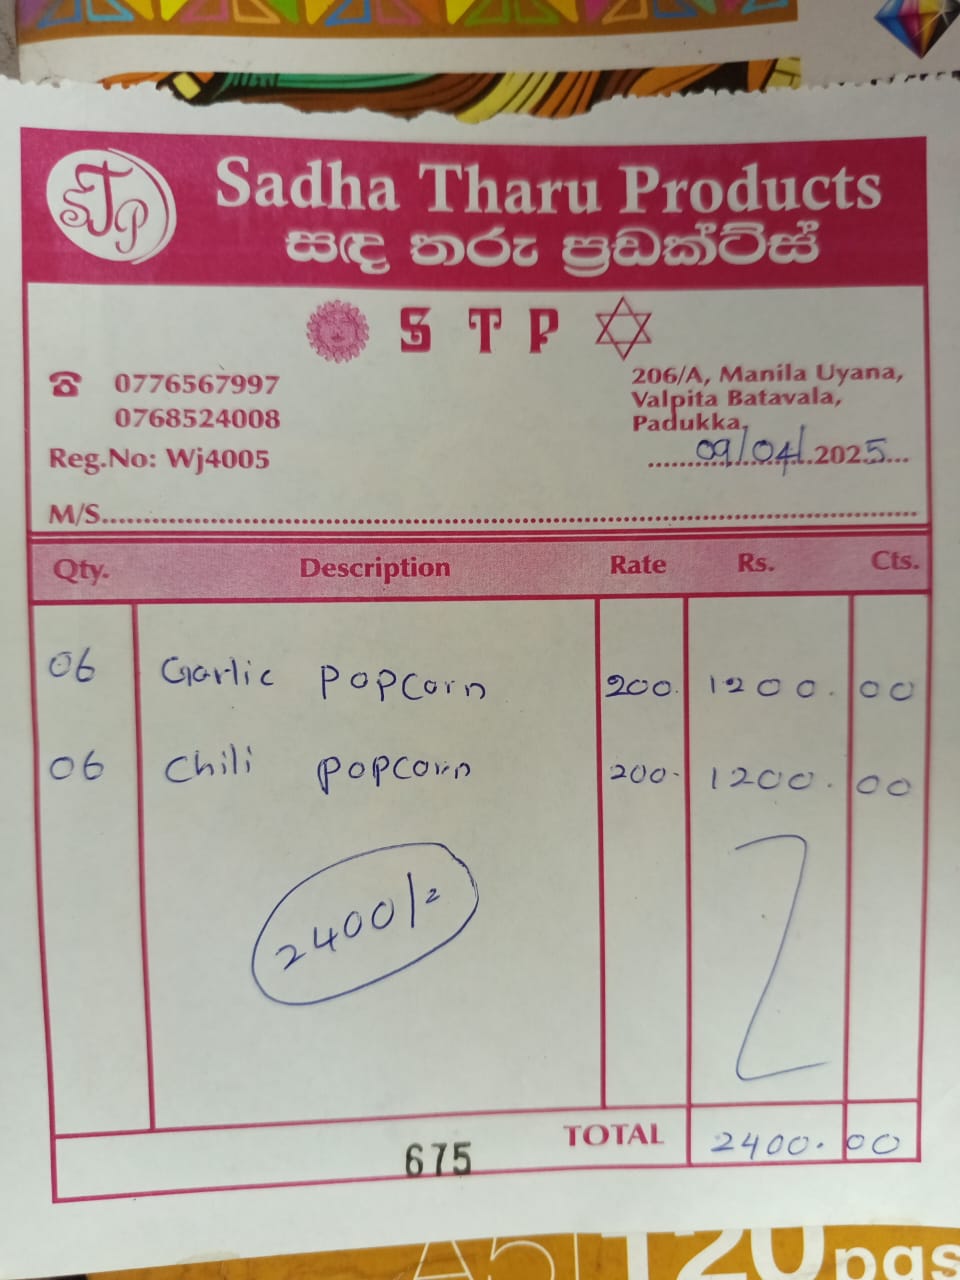 STP
Sadha Tharu Products
සඳ තරු ප්‍රඩක්ට්ස්
S T P
0776567997
0768524008
Reg.No: Wj4005
206/A, Manila Uyana,
Valpita Batavala,
Padukka.
09/04/.2025...
M/S
Qty. Description Rate Rs. Cts.
06 Garlic popcorn 200. 1200. 00
06 Chili popcorn 200- 1200. 00
2400/=
TOTAL 2400. 00
675
A5 120pgs